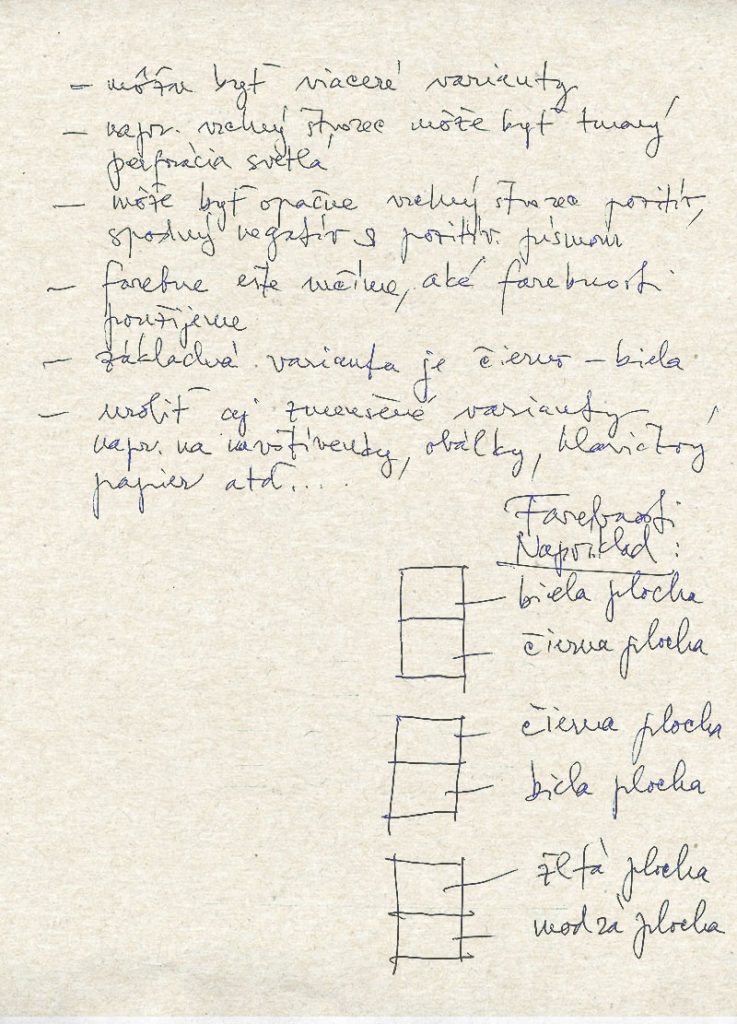 – môžu byť viaceré varianty
– napr. vrchný štvorec môže byť tmavý
perforácia svetlá
– môže byť opačne vrchný štvorec pozitív,
spodný negatív s pozitív. písmom
– farebne ešte určíme, aké farebnosti
použijeme
– základná varianta je čierno – biela
– urobiť aj zmenšené varianty
napr. na navštívenky, obálky, hlavičkový
papier atď....
Farebnosti
Napríklad:
biela plocha
čierna plocha
čierna plocha
biela plocha
žltá plocha
modrá plocha